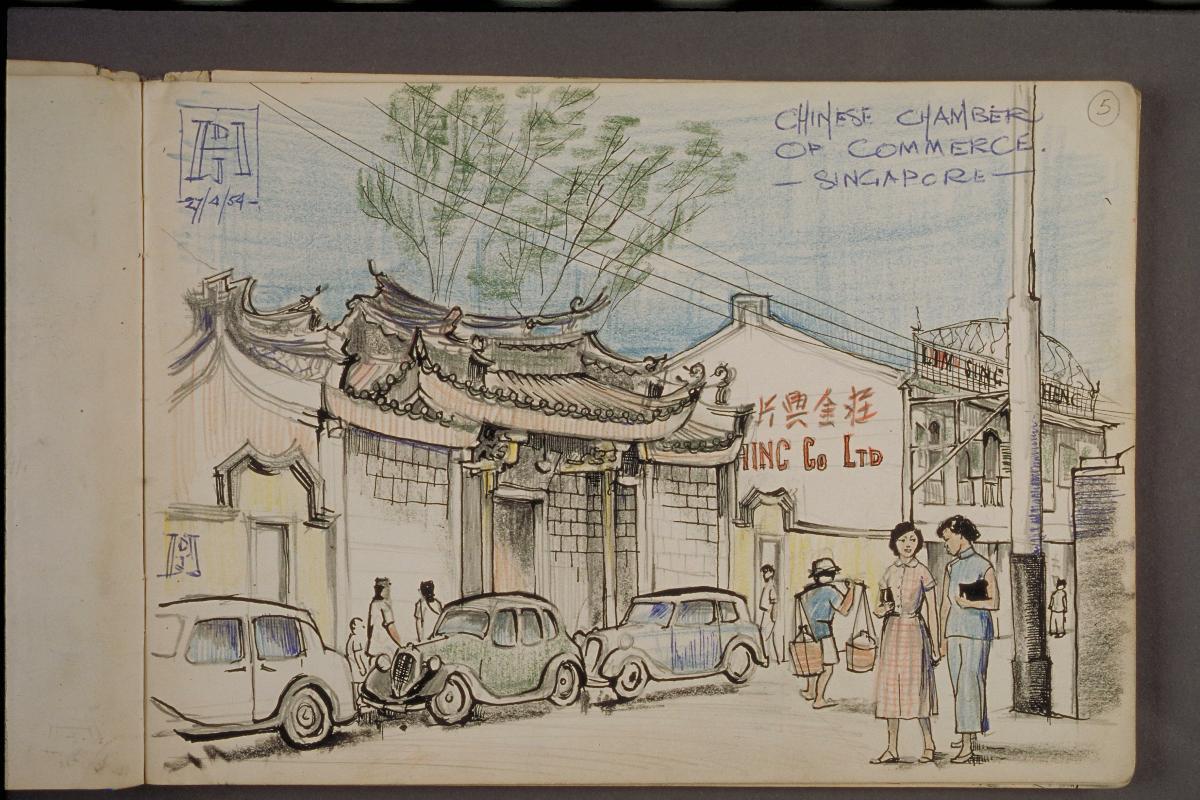 27/4/54
CHINESE CHAMBER
OF COMMERCE.
— SINGAPORE —
5
LIM SING
片興金莊
HING Co LTD